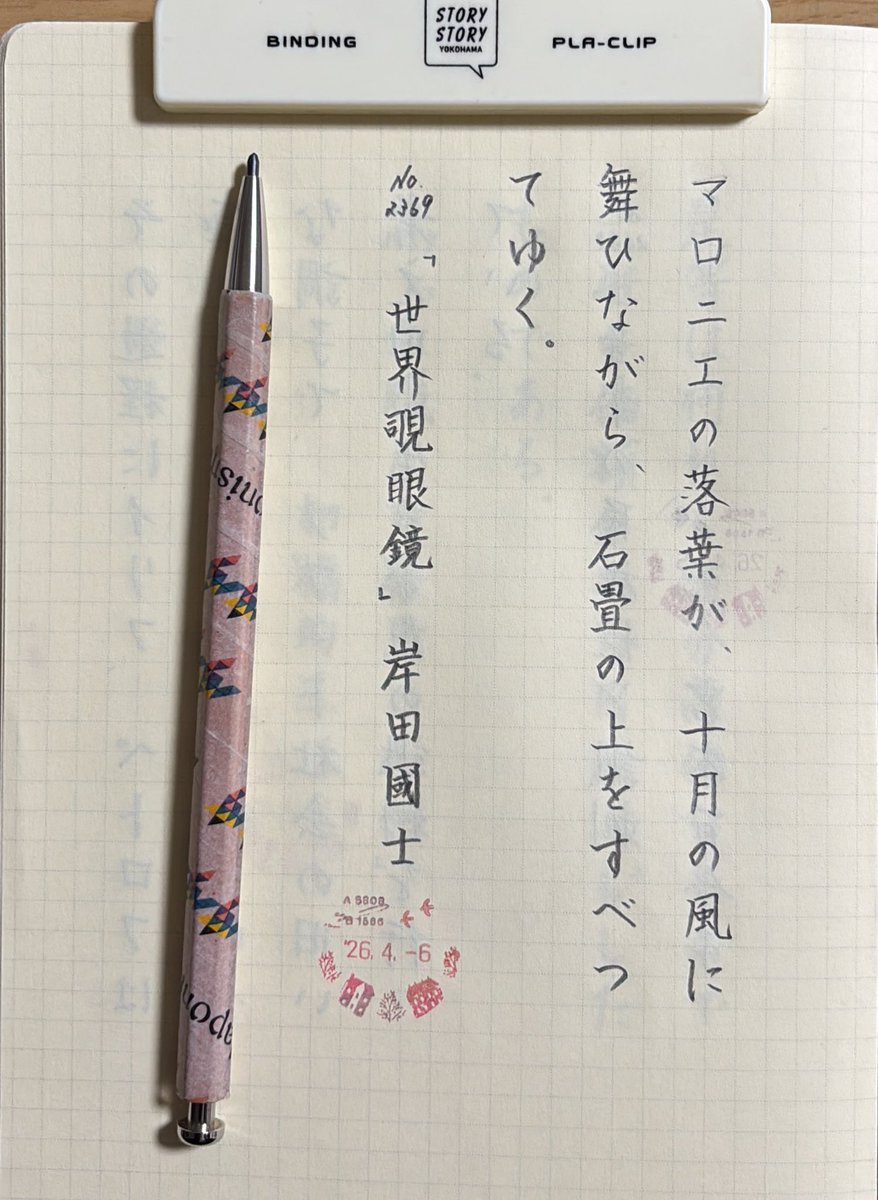 BINDING
STORY
STORY
YOKOHAMA
PLA-CLIP
マロニエの落葉が、十月の風に
舞ひながら、石畳の上をすべつ
てゆく。
No.
2369
「世界覗眼鏡」 岸田國士
A 5808
B 1586
'26. 4. -6